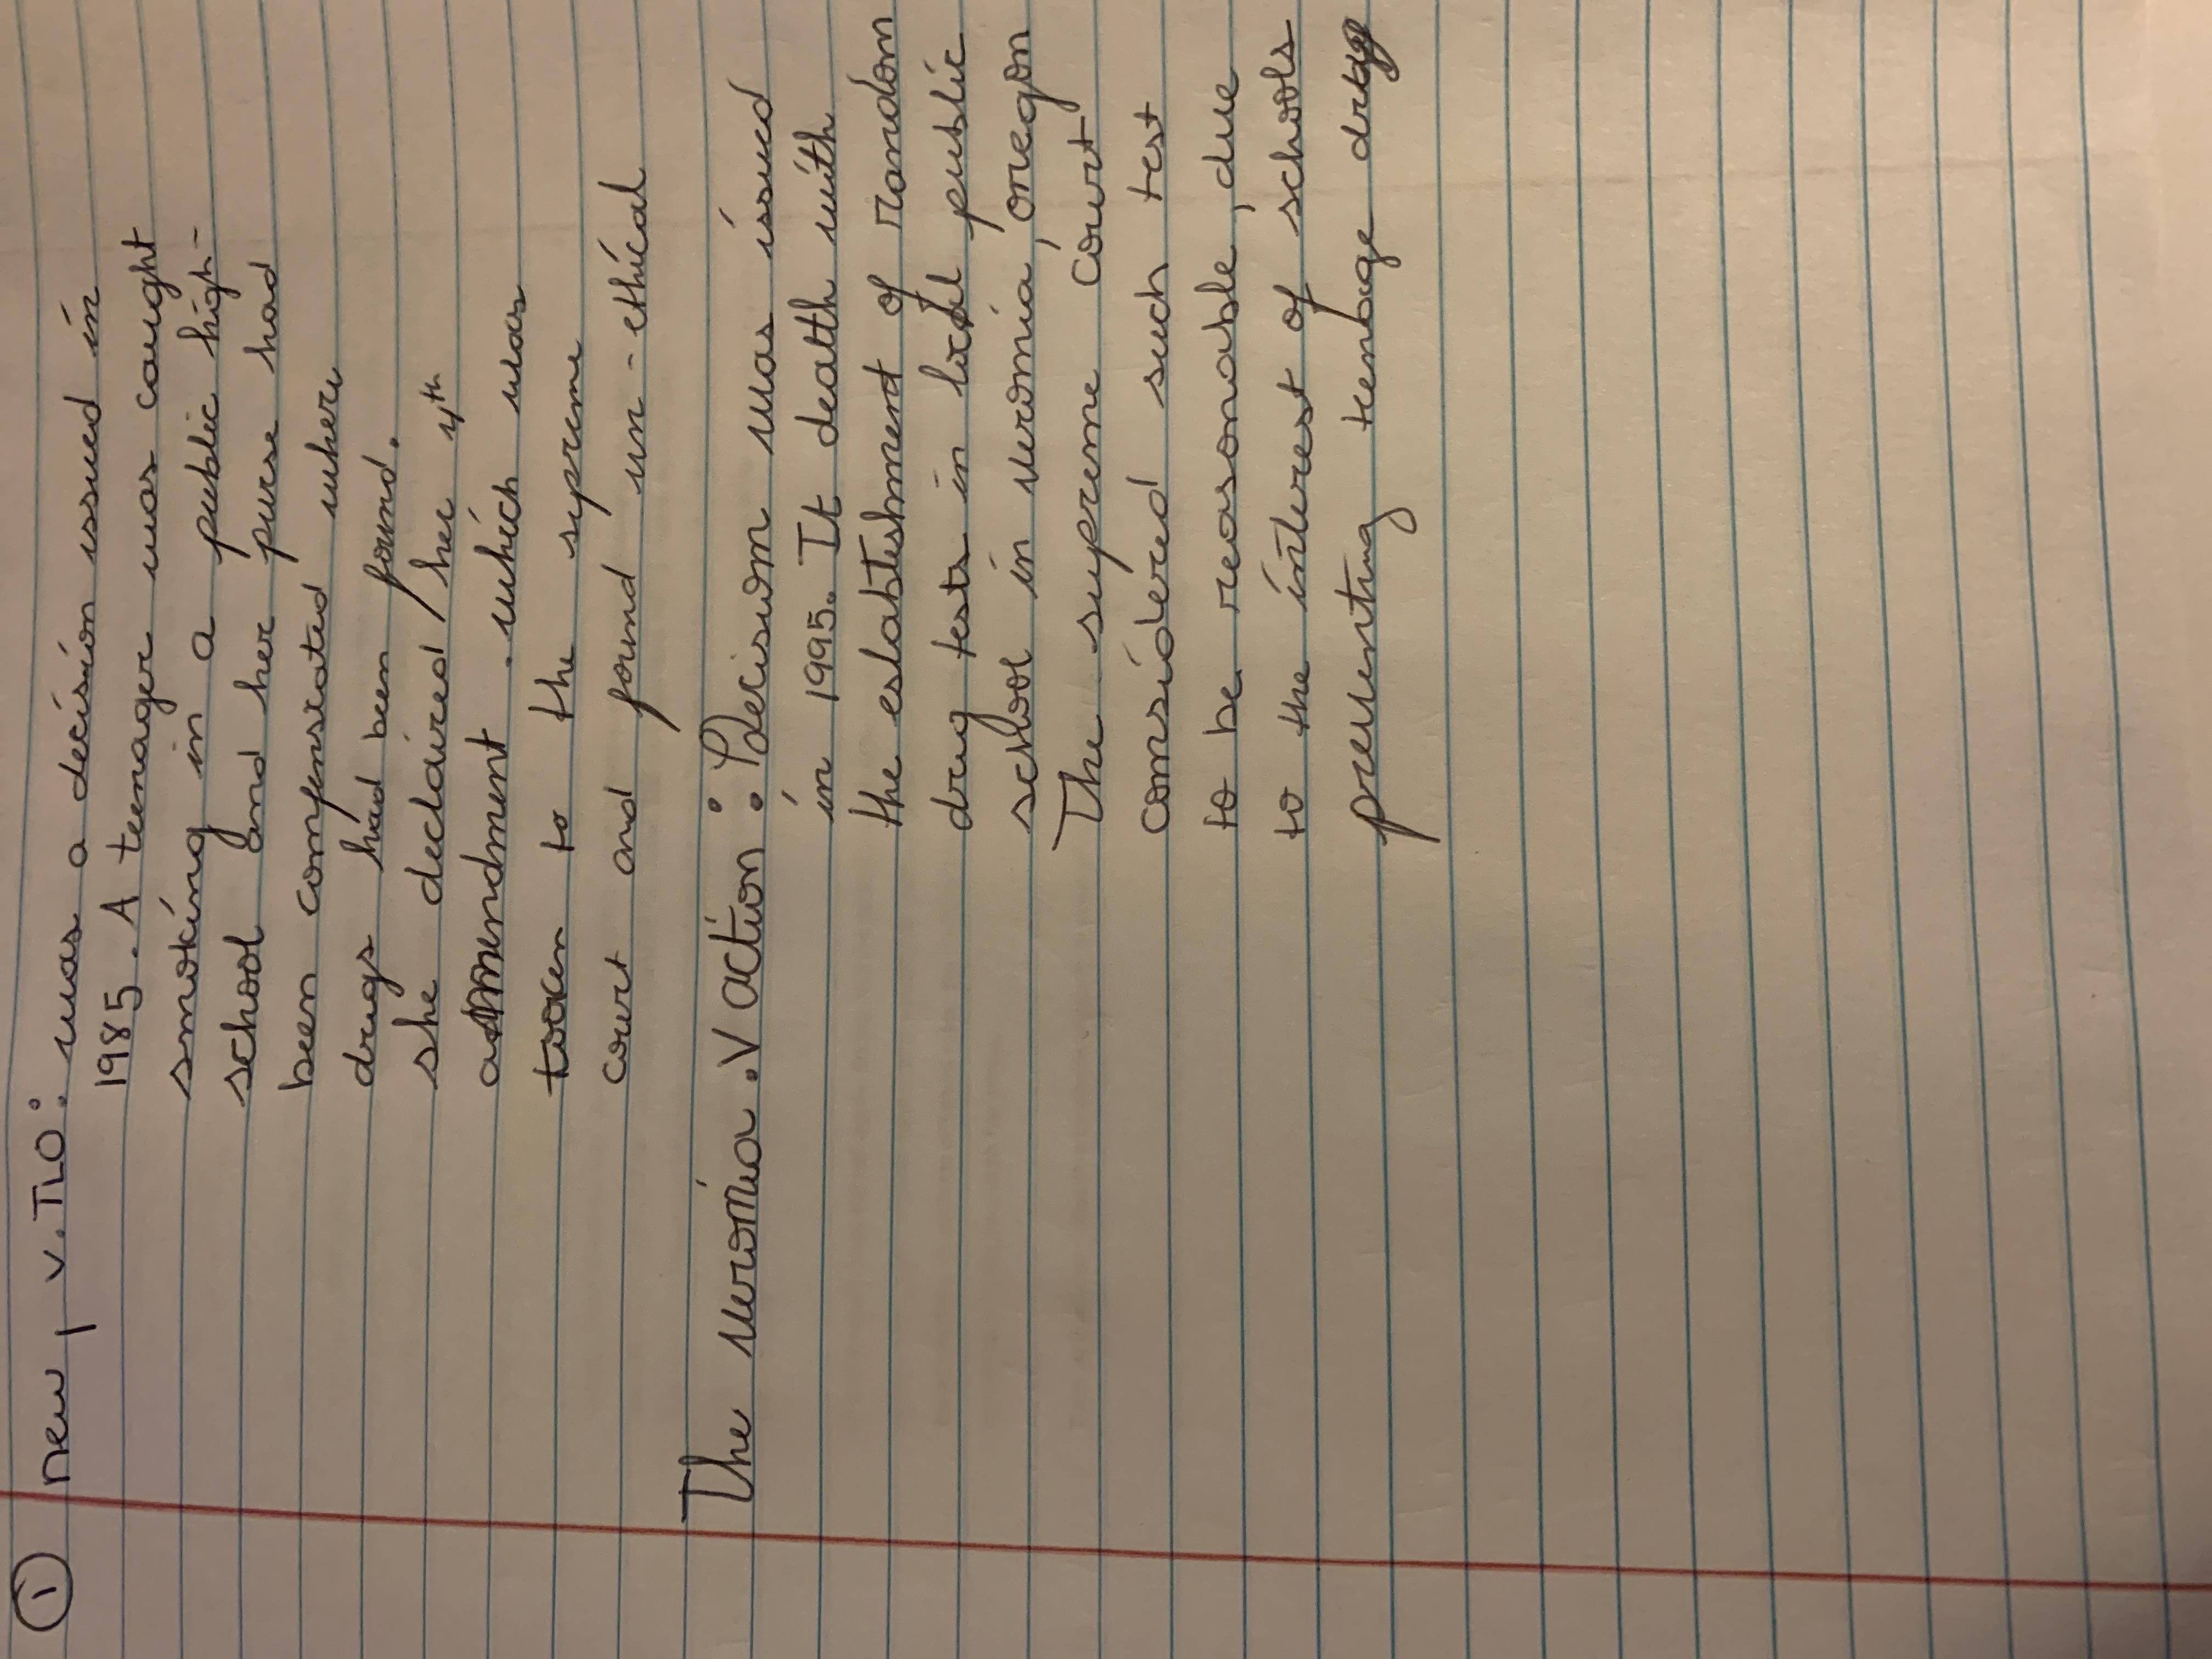 ① new J v. TLO: was a decision issued in
1985. A teenager was caught
smoking in a public high-
school and her purse had
been comfensrated where
drugs had been found.
she declaired / her 4th
amendment. which was
taken to the sypreme
court and found un-ethical
The veromia .V action: Decision was issued
in 1995. It dealth with
the establishment of random
drug tests in local public
school in veromia, oregon
The supreme court
considered such test
to be reasonable, due
to the interest of schools
preventing teenage drug